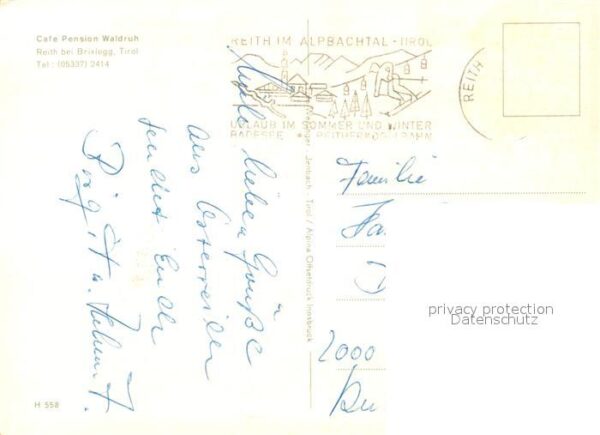 Cafe Pension Waldruh
Reith bei Brixlegg, Tirol
Tel.: (05337) 2414
REITH IM ALPBACHTAL - TIROL
URLAUB IM SOMMER UND WINTER
BADESEE
REITH
Jenbach - Tirol / Alpina Offsetdruck Innsbruck
lieben Grüße
aus Österreich
sendet Euch
Birgit u. Helmut
Familie
2000
privacy protection
Datenschutz
H 558